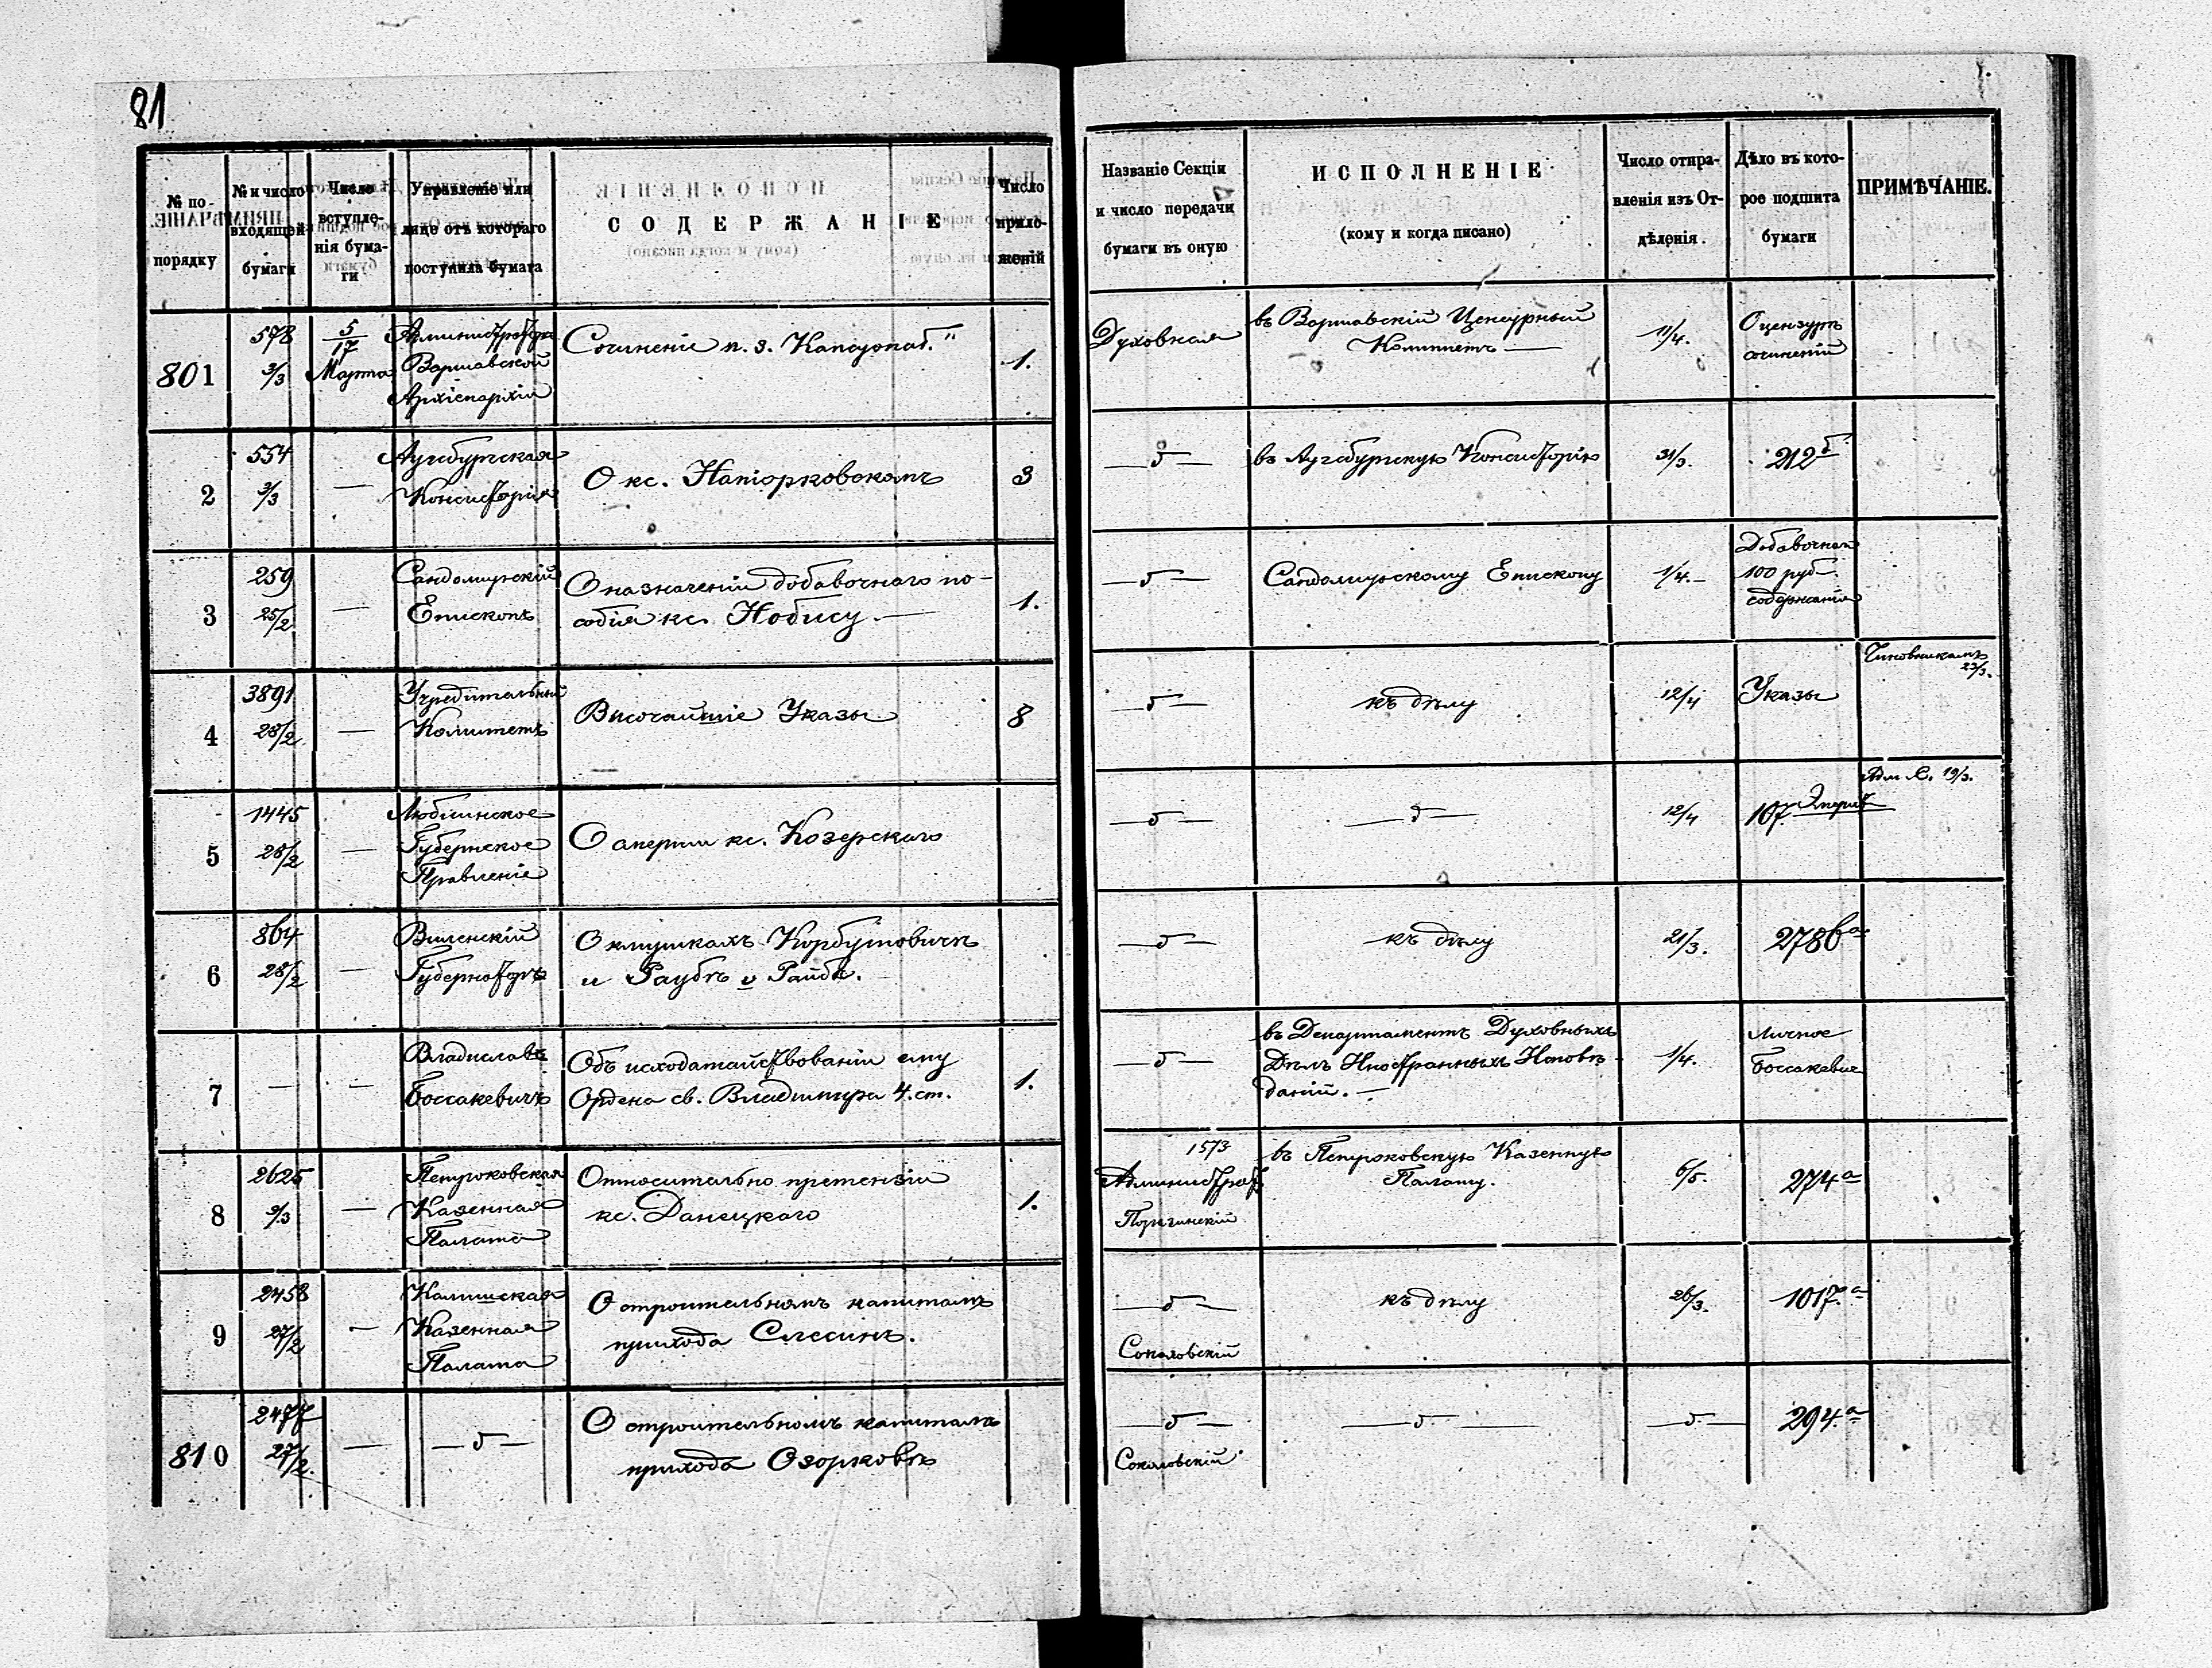 81
№ по-
порядку
№ и число
входящей
бумаги
Число
вступле-
нія бума-
ги
Управленіе или
лице отъ котораго
поступила бумага
СОДЕРЖАНІЕ
Число
прило-
женій
Названіе Секціи
и число передачи
бумаги въ оную
ИСПОЛНЕНІЕ
(кому и когда писано)
Число отпра-
вленія изъ От-
дѣленія.
Дѣло въ кото-
рое подшита
бумаги
ПРИМѢЧАНІЕ.
801
578
3/3
5/17
Марта
Администраторъ
Варшавской
Архіепархіи
Сочиненіе п. з.
1.
Духовная
въ Варшавскій Цензурный
Комитетъ —
11/4.
О цензурѣ
сочиненій
2
554
3/3
—
Аугсбургская
Консисторія
О кс. Напіорковскомъ
3
— д —
въ Аугсбургскую Консисторію
31/3.
212 б
3
259
25/2
—
Сандомирскій
Епископъ
О назначеніи добавочнаго по-
собія кс. Нобису. —
1.
— д —
Сандомирскому Епископу
1/4. —
Добавочная
100 руб.
содержанія
4
3891
28/2
—
Учредительный
Комитетъ
Высочайшіе Указы
8
— д —
къ дѣлу
12/4
Указы
Чиновникамъ
23/3.
5
1445
28/2
—
Люблинское
Губернское
Правленіе
О емеритѣ кс. Козерскаго
— д —
— д —
12/4
107. Эмерит
19/3.
6
864
28/2
—
Виленскій
Губернаторъ
О Корбутовичѣ
и Раубѣ v Райбѣ.
— д —
къ дѣлу
21/3.
2786 а
7
—
—
Владиславъ
Боссакевичъ
Объ исходатайствованіи ему
Ордена св. Владиміра 4. ст.
1.
— д —
въ Департаментъ Духовныхъ
Дѣлъ Иностранныхъ Исповѣ-
даній. —
1/4.
Личное
Боссакевича
8
2625
9/3
—
Петроковская
Казенная
Палата
Относительно претензіи
кс. Данецкаго
1.
1573
Администрат.
въ Петроковскую Казенную
Палату.
6/5.
274 а
9
2458
27/2
—
Калишская
Казенная
Палата
О строительномъ капиталѣ
прихода Слесинъ.
— д —
Соколовскій
къ дѣлу
26/3.
1017. а
810
2477
27/2.
—
— д —
О строительномъ капиталѣ
прихода Озорковъ
— д —
Соколовскій
— д —
— д —
294. а